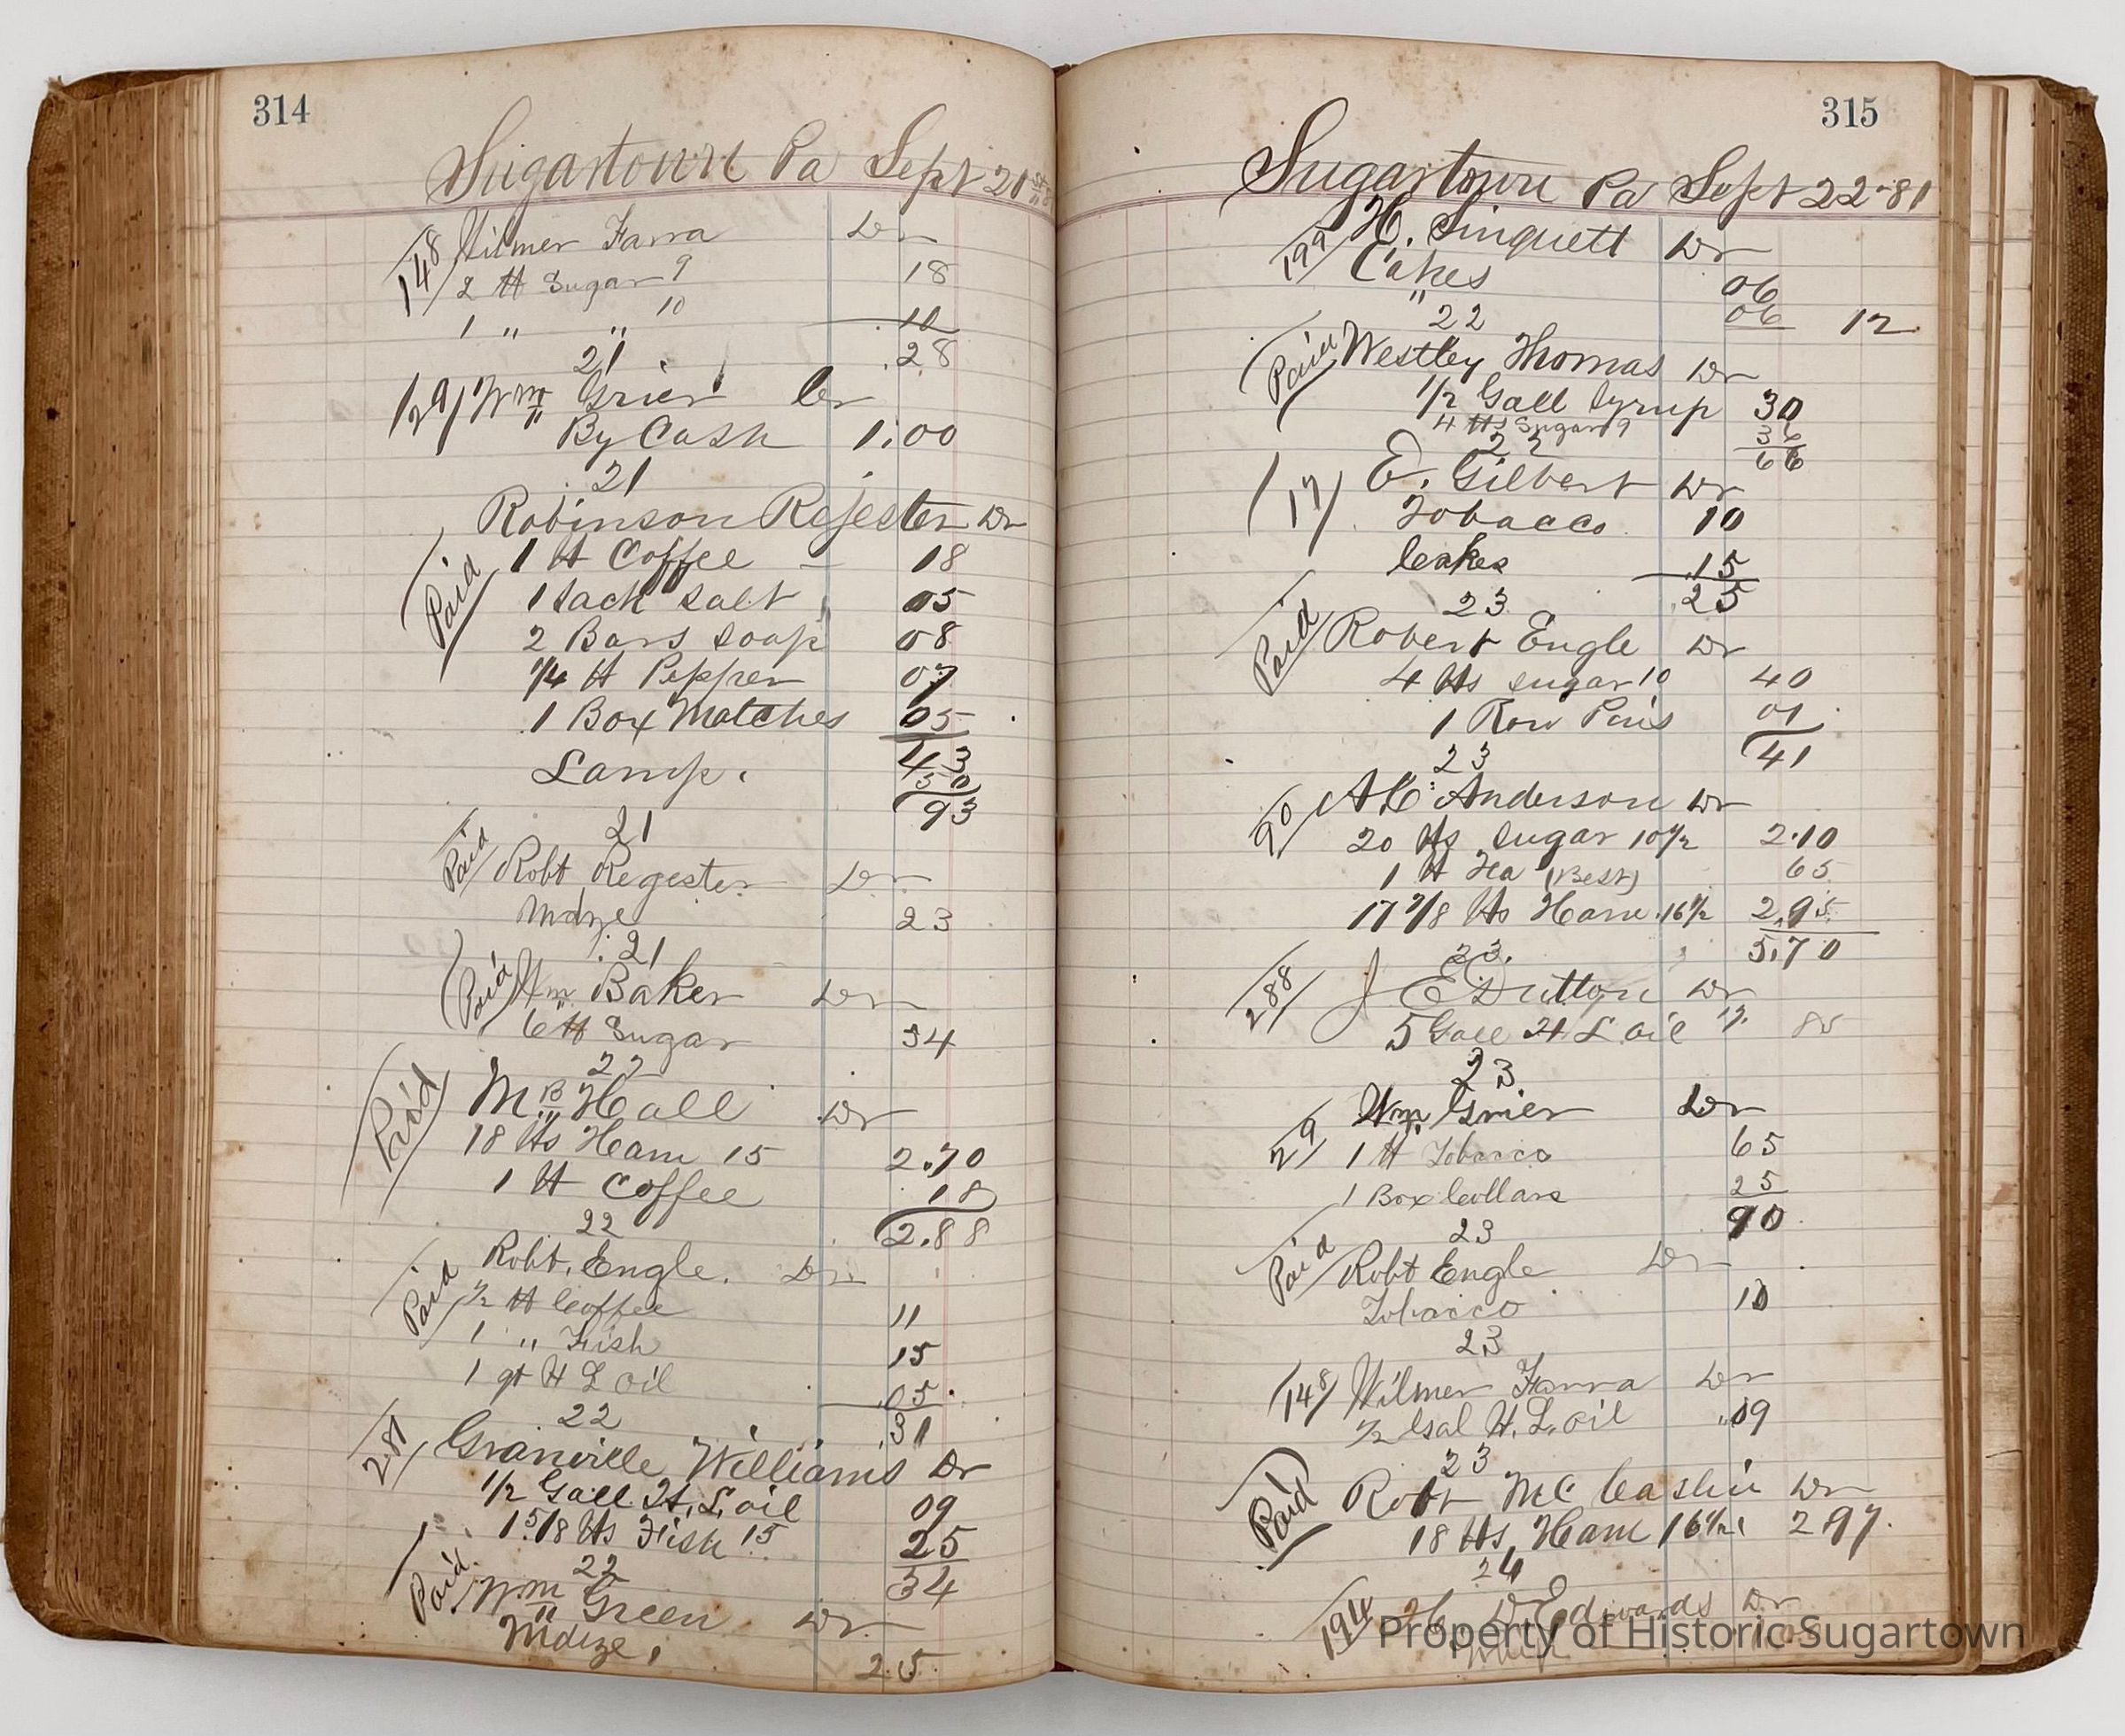 314
Sugartown Pa Sept 21st 81
148 Wilmer Farra Dr
2 lb Sugar 9 18
1 " " 10 10
28
21
129 Wm Grier Cr
By Cash 1.00
21
Robinson Rejester Dr
Paid 1 lb Coffee 18
1 Sack Salt 05
2 Bars Soap 08
1/4 lb Pepper 07
1 Box Matches 05
43
Lamp. 50
93
21
Paid Robt Regester Dr
Mdze 23
21
Paid Wm Baker Dr
6 lb Sugar 54
22
Paid M B Hall Dr
18 lbs Ham 15 2.70
1 lb Coffee 18
22 2.88
Paid Robt. Engle. Dr
1/2 lb Coffee 11
1 " Fish 15
1 qt H L Oil 05
22 31
281 Granville Williams Dr
1/2 Gall H. L. oil 09
1 5/8 lbs Fish 15 25
22 34
Paid Wm Green Dr
Mdze, 25
315
Sugartown Pa Sept 22-81
199 H. Sinquett Dr
Cakes 06
" 06 12
22
Paid Westley Thomas Dr
1/2 Gall Syrup 30
4 lbs Sugar 9 36
22 66
17 E. Gilbert Dr
Tobacco 10
Cakes 15
23 25
Paid Robert Engle Dr
4 lbs Sugar 10 40
1 Row Pins 01
23 41
90 A C Anderson Dr
20 lbs Sugar 10 1/2 2.10
1 lb Tea (Best) 65
17 7/8 lbs Ham 16 1/2 2.95
23. 5.70
288 J E Dutton Dr
5 Gall H L oil 17 85
23
29 Wm Grier Dr
1 lb Tobacco 65
1 Box Collars 25
23 90
Paid Robt Engle Dr
Tobacco 10
23
148 Wilmer Farra Dr
1/2 Gal H. L. oil 09
23
Paid Robt Mc Caslin Dr
18 lbs Ham 16 1/2 2 97.
24
194 H. D. Edwards Dr
Property of Historic Sugartown